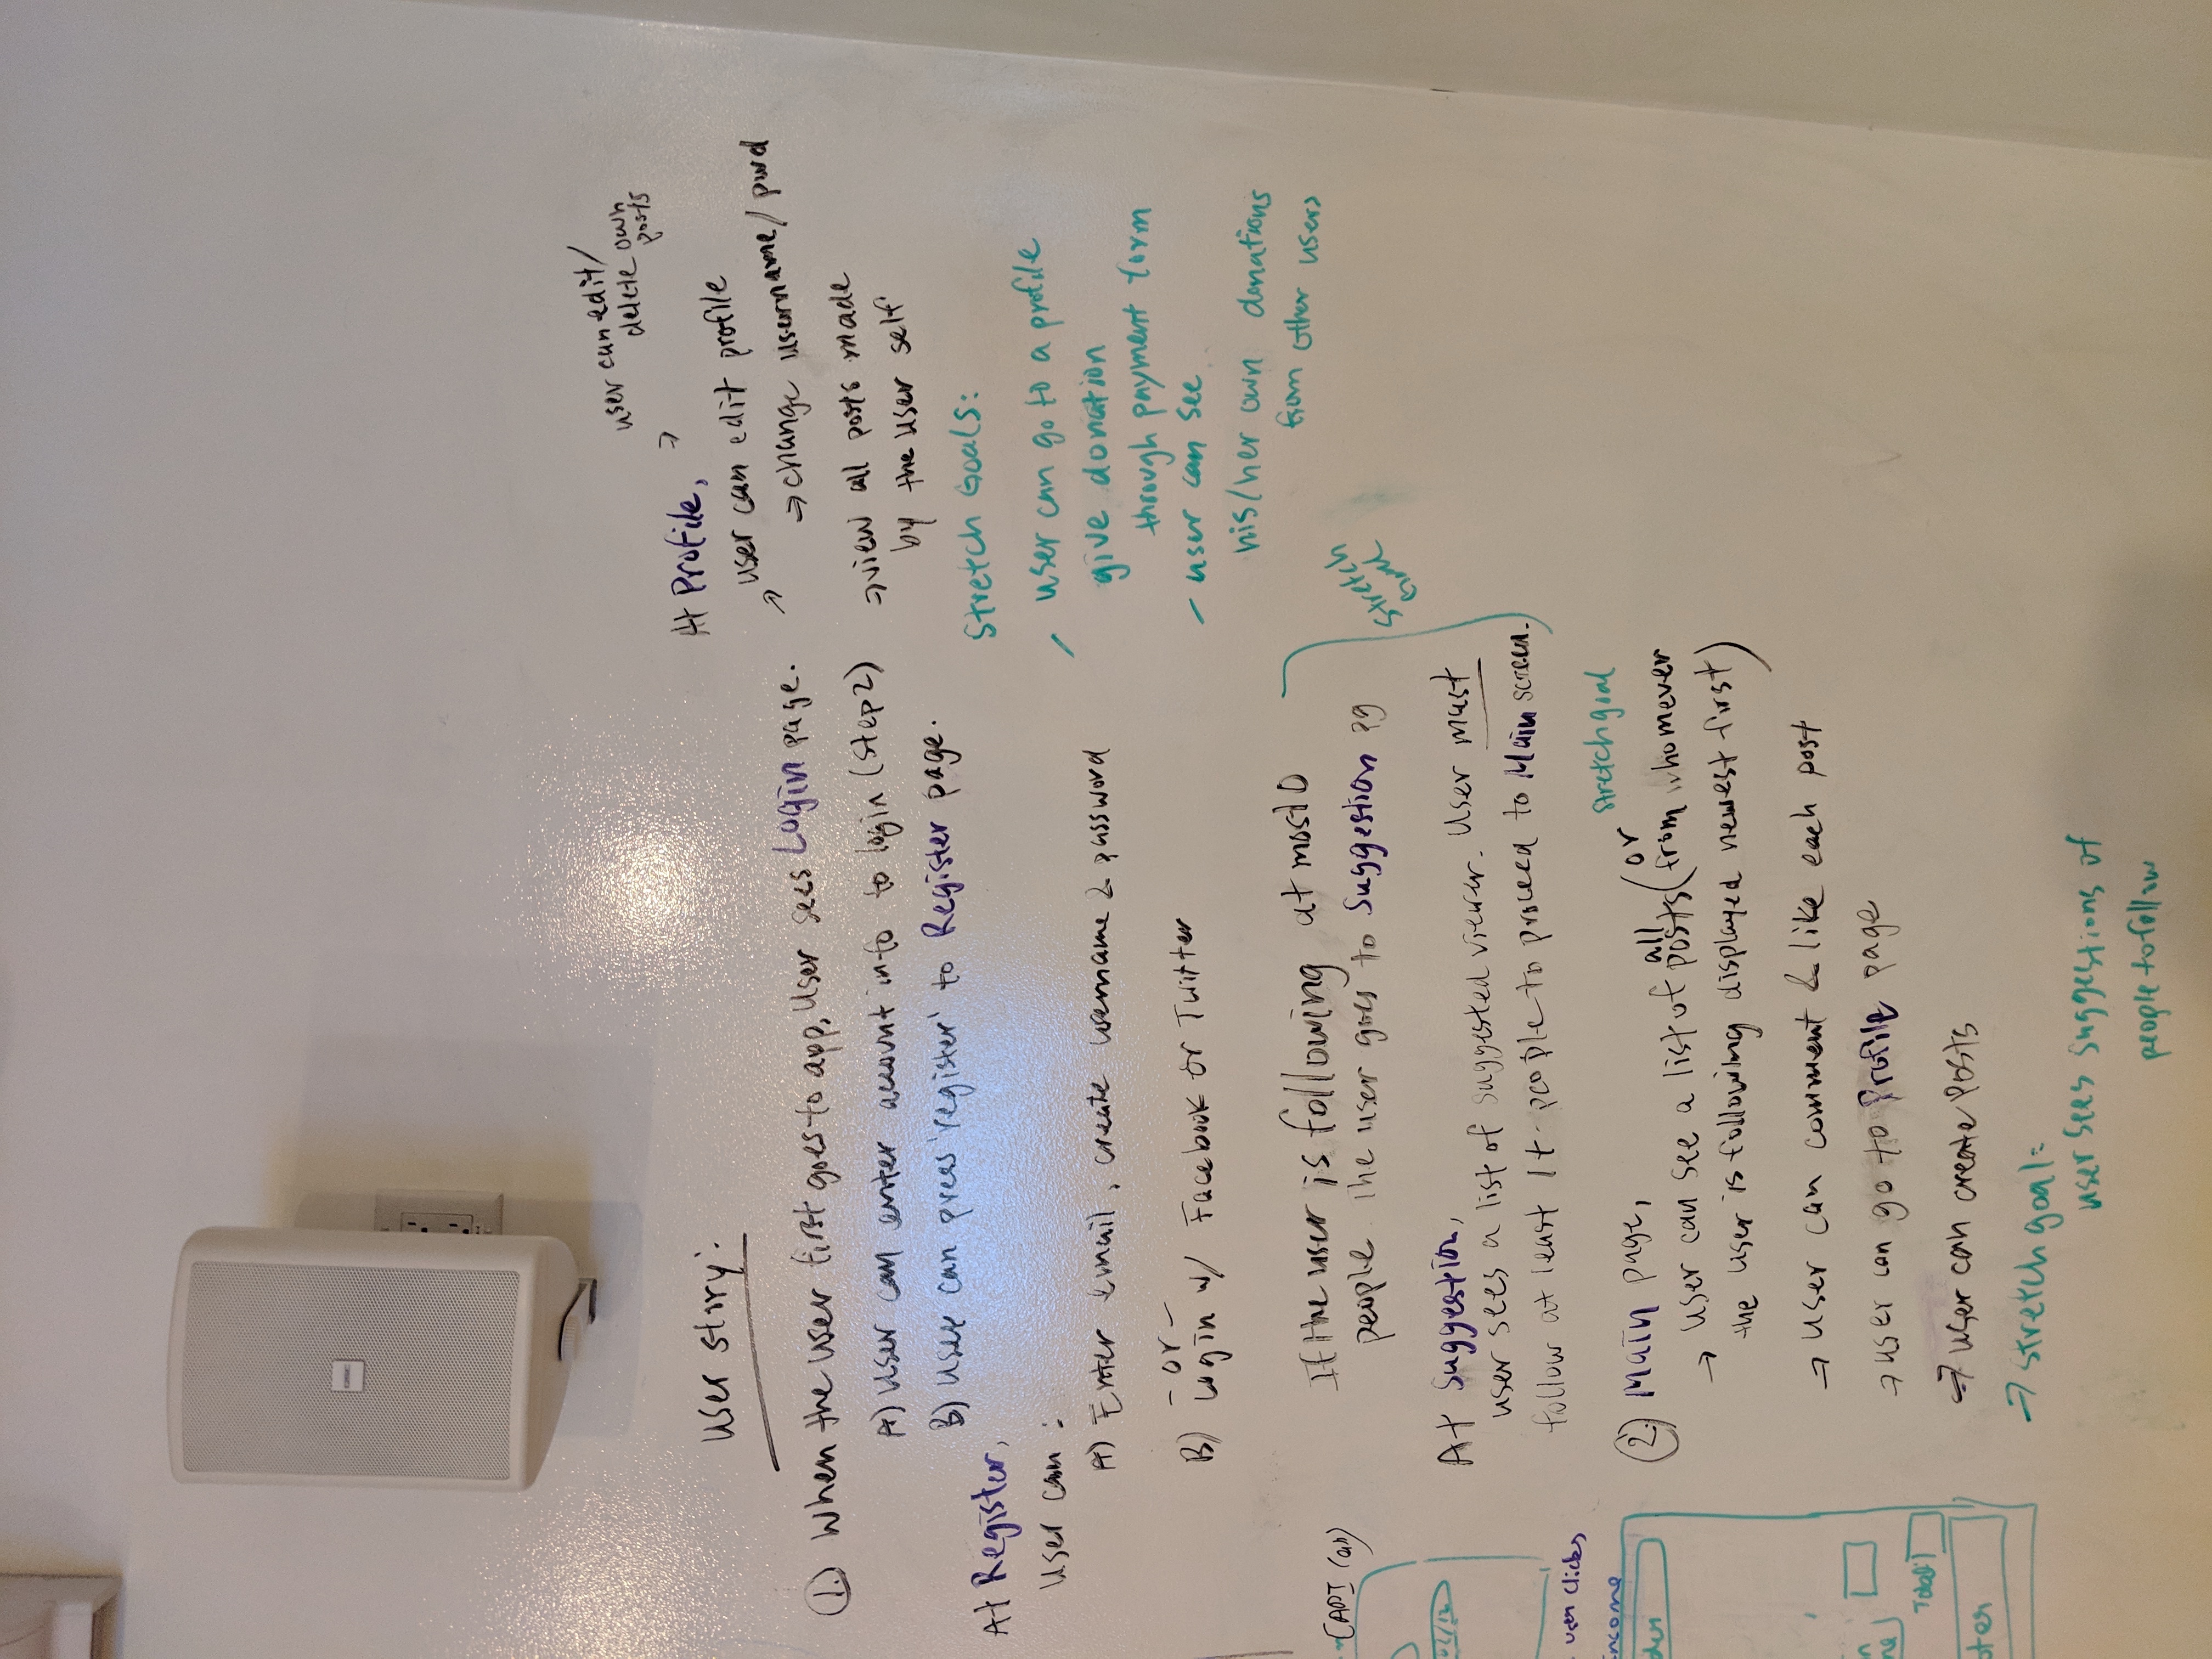 user story:
1. When the user first goes to app, user sees Login page.
A) user can enter account info to login (step 2)
B) user can press 'register' to Register page.
At Register,
user can:
A) Enter email, create username & password
- or -
B) Login w/ Facebook or Twitter
If the user is following at most 0
people the user goes to Suggestion pg
stretch
At Suggestion,
user sees a list of suggested viewer. User must
follow at least 1+ people to proceed to Main screen.
stretch goal
2. Main page,
→ user can see a list of all posts (or from whomever
the user is following displayed newest first)
→ user can comment & like each post
→ user can go to Profile page
→ user can create posts
→ stretch goal:
user sees suggestions of
people to follow
At Profile,
→ user can edit/
delete own
posts
→ user can edit profile
⇒ change username/pwd
→ view all posts made
by the user self
Stretch Goals:
- user can go to a profile
give donation
through payment form
- user can see
his/her own donations
from other users
user clicks
income
Total